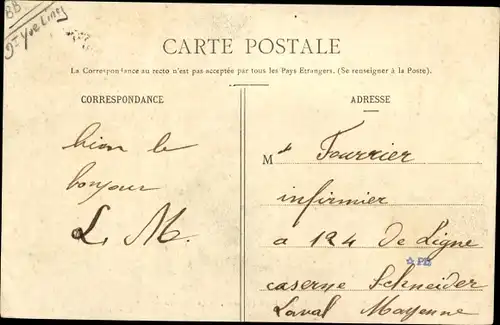 BB
CARTE POSTALE
La Correspondance au recto n'est pas acceptée par tous les Pays Etrangers. (Se renseigner à la Poste).
CORRESPONDANCE
bien le
bonjour
L. M.
ADRESSE
M Fourrier
infirmier
a 124 de Ligne
caserne Schneider
Laval Mayenne